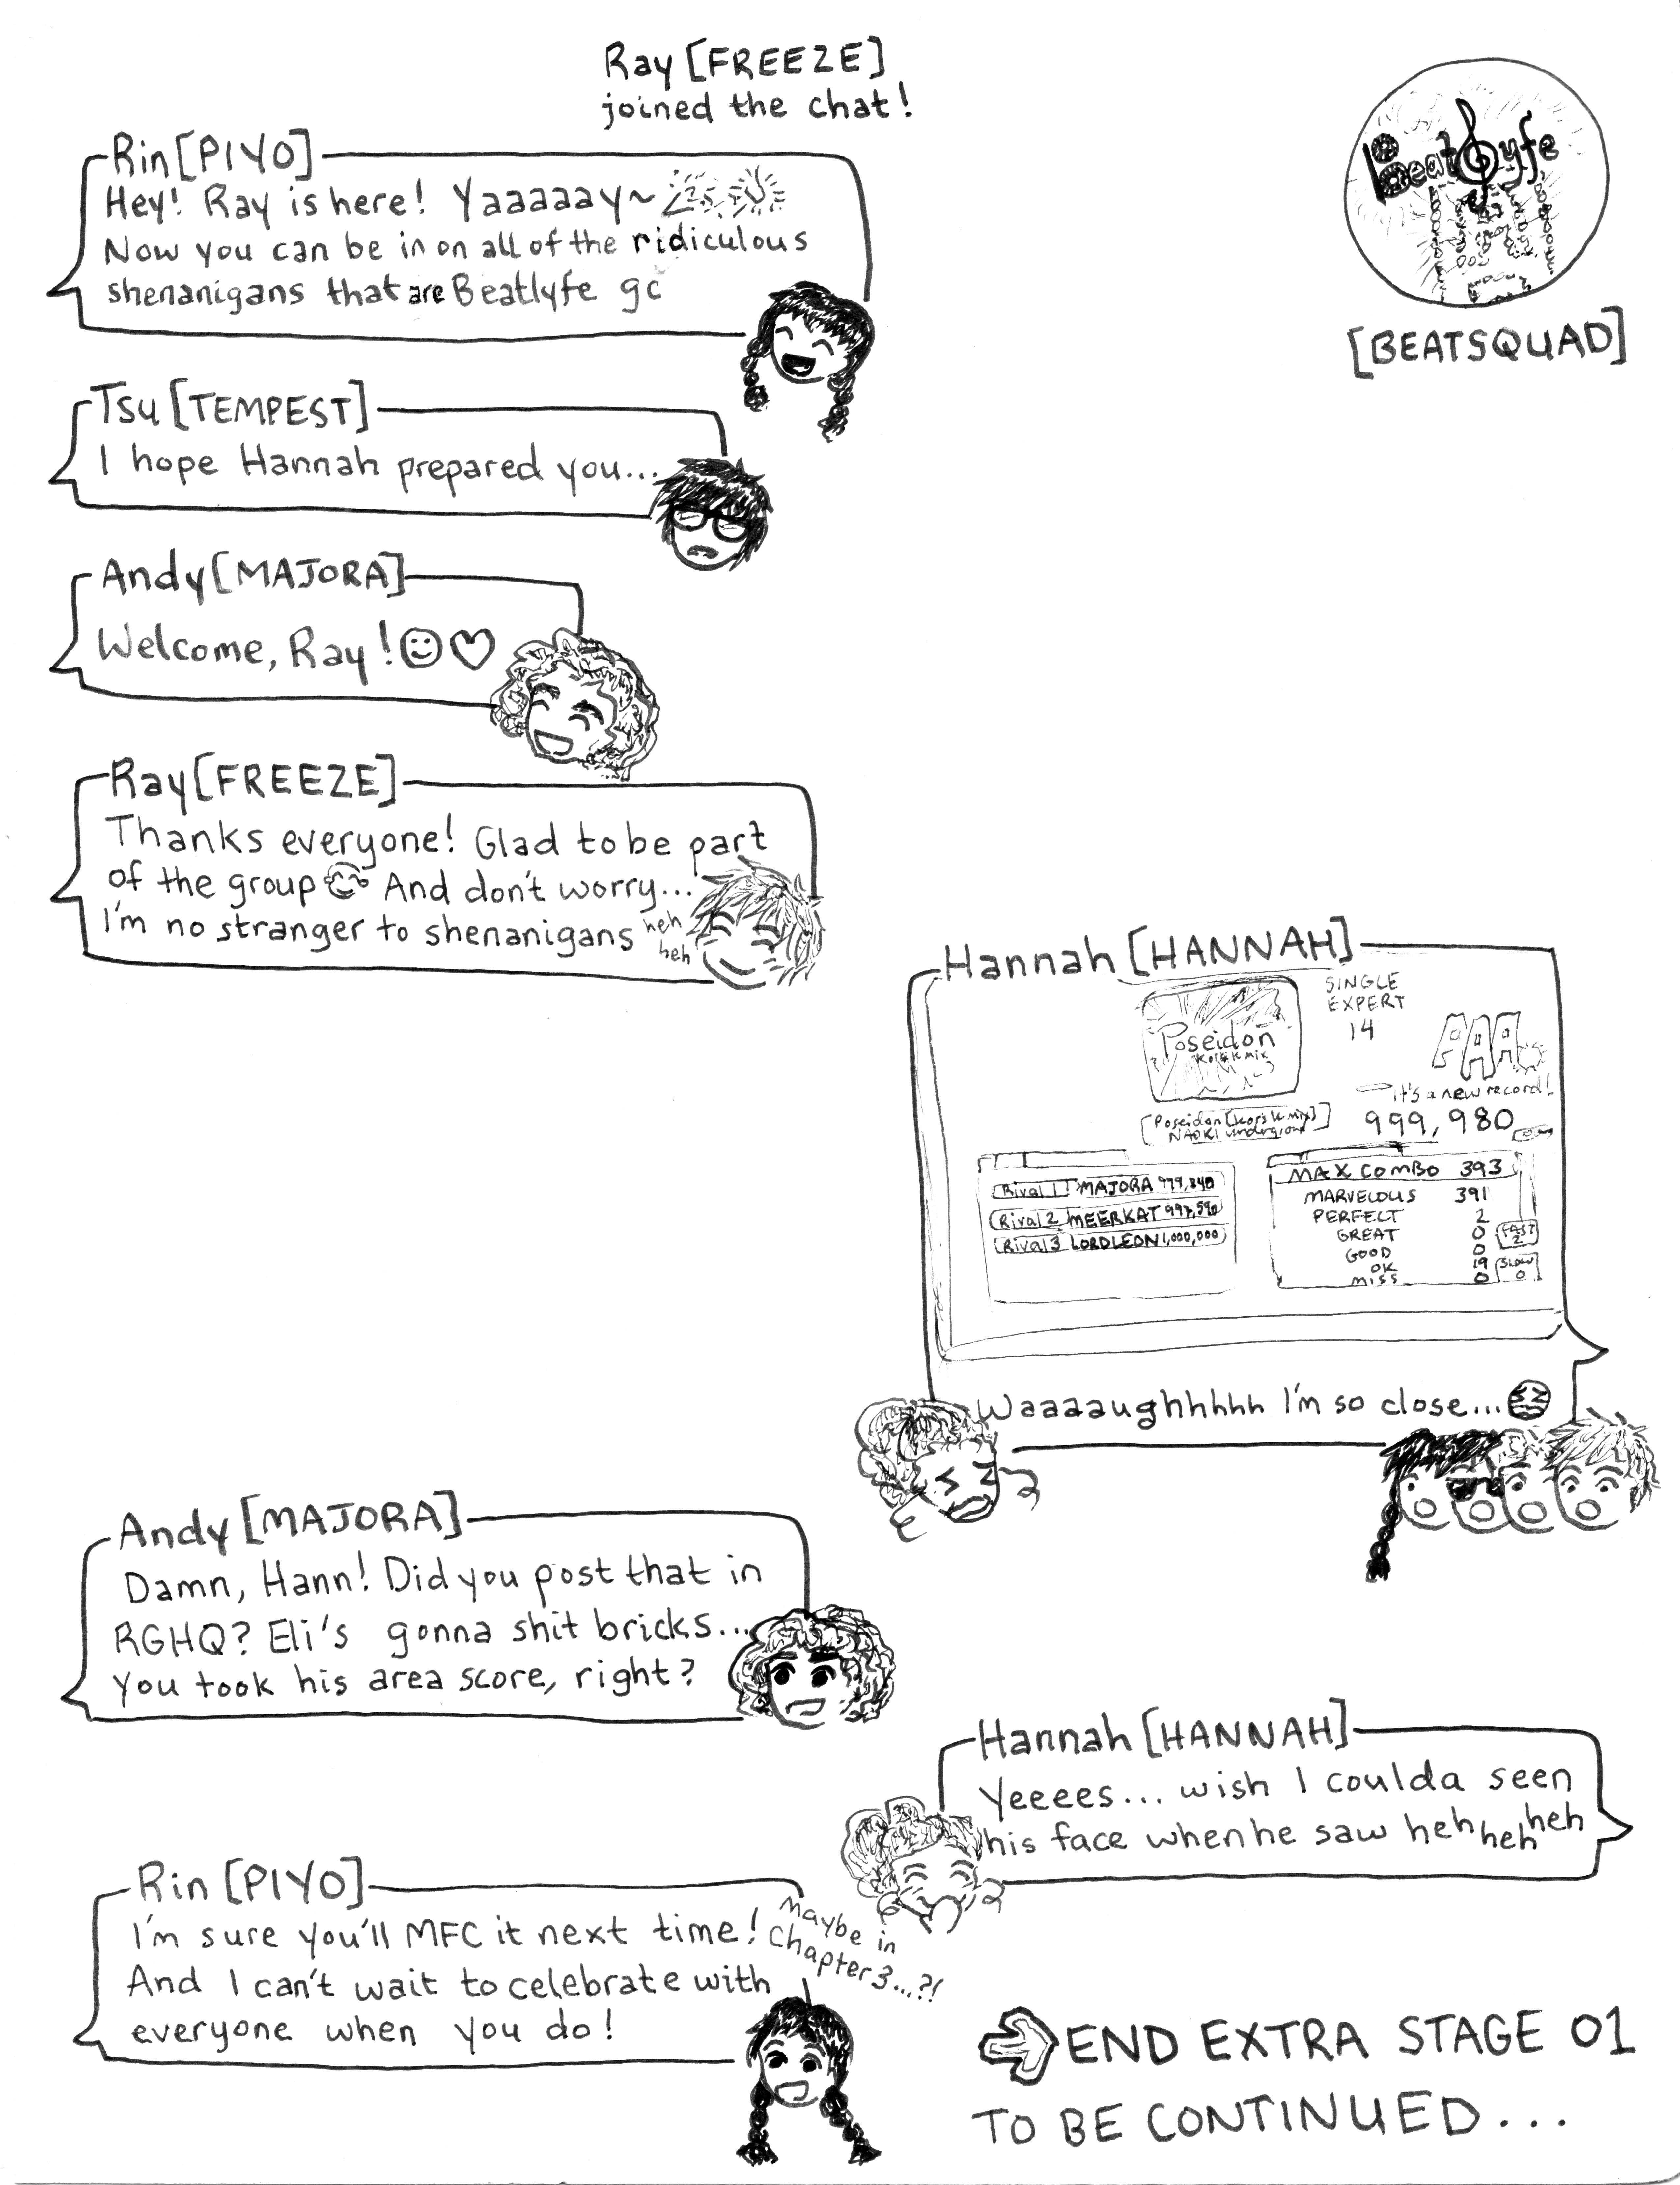 Ray [FREEZE]
joined the chat!
Beatlyfe
[BEATSQUAD]
Rin [PIYO]
Hey! Ray is here! Yaaaaay~
Now you can be in on all of the ridiculous
shenanigans that are Beatlyfe gc
Tsu [TEMPEST]
I hope Hannah prepared you...
Andy [MAJORA]
Welcome, Ray!
Ray [FREEZE]
Thanks everyone! Glad to be part
of the group And don't worry...
I'm no stranger to shenanigans
heh
heh
Hannah [HANNAH]
Poseidon
kors k mix
SINGLE
EXPERT
14
AAA
It's a new record!
[Poseidon [kors k mix]]
NAOKI underground
999,980
Rival 1 MAJORA 999,840
Rival 2 MEERKAT 997,590
Rival 3 LORDLEON 1,000,000
MAX COMBO 393
MARVELOUS 391
PERFECT 2
GREAT 0
GOOD 0
OK 19
MISS 0
FAST
2
SLOW
0
Waaaaughhhhh I'm so close...
Andy [MAJORA]
Damn, Hann! Did you post that in
RGHQ? Eli's gonna shit bricks...
you took his area score, right?
Hannah [HANNAH]
Yeeees... wish I coulda seen
his face when he saw heh heh heh
Rin [PIYO]
I'm sure you'll MFC it next time!
And I can't wait to celebrate with
everyone when you do!
Maybe in
Chapter 3...?!
END EXTRA STAGE 01
TO BE CONTINUED...